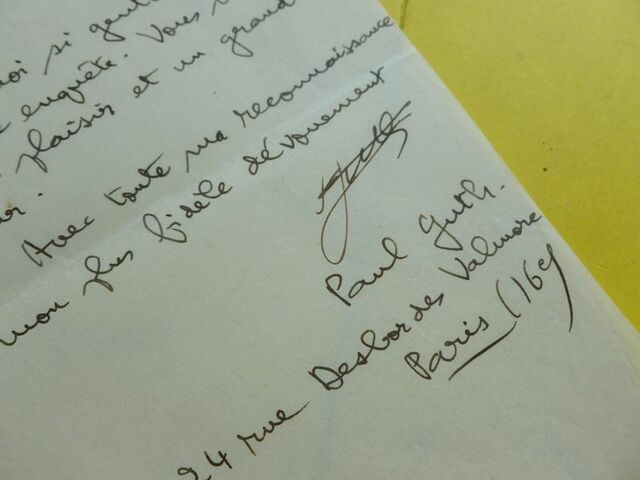 si genti
enquête. Vous
plaisir et un grand
Avec toute ma reconnaissance
mon plus fidèle dévouement
Paul Guth.
24 rue Desbordes Valmore
Paris (16e)